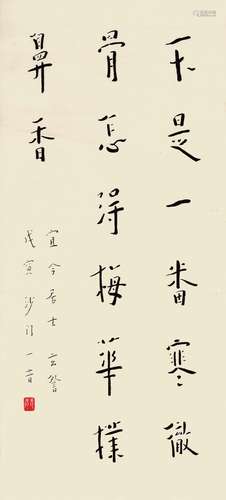 不是一番寒徹
骨怎得梅華撲
鼻香
宜今居士
戊寅沙門一音